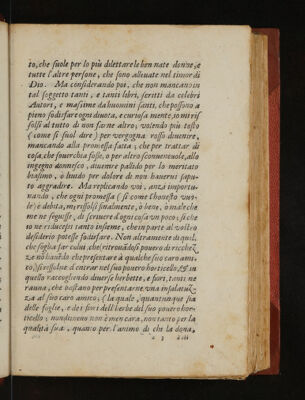 to, che suole per lo più dilettare le ben nate donne, e
tutte l'altre persone, che sono alleuate nel timor di
Dio. Ma considerando poi, che non mancano in
tal soggetto tanti, e tanti libri, scritti da celebri
Autori, e massime da huomini santi, che possono a
pieno sodisfare ogni diuota, e curiosa mente, io mi ri
solsi al tutto di non farne altro; volendo più tosto
(come si suol dire) per vergogna rosso diuenire,
mancando alla promessa fatta; che per trattar di
cosa, che souerchia fosse, o per altro sconueneuole, allo
ingegno domnesco, diuenire pallido per lo meritato
biasimo, o liuido per dolore di non hauerui sapu-
to aggradire. Ma replicando voi, anzi importu-
nando, che ogni promessa (si come l'honesto vuo-
le) è debita, mi rissolsi finalmente, o bene, o male che
me ne seguisse, di scriuere d'ogni cosa vn poco; si che
io ne riducessi tanto insieme, che in parte al vostro
desiderio potesse sodisfare. Non altramente di quel,
che soglia far colui, che ritrouandosi pouero di ricchez
ze nõ hauẽdo che presentare à qualche suo caro ami-
co, si risoluesse d'entrar nel suo pouero horticello, & in
quello raccogliendo diuerse herbette, e fiori, tanti ne
rauna, che bastano per presentarne vna insalatuz-
za al suo caro amico; (la quale, quantunque sia
delle foglie, e de i fiori dell'herbe del suo pouero hor-
ticello; nondimeno non è men cara, non tanto per la
qualità sua, quanto per l'animo di chi la dona,